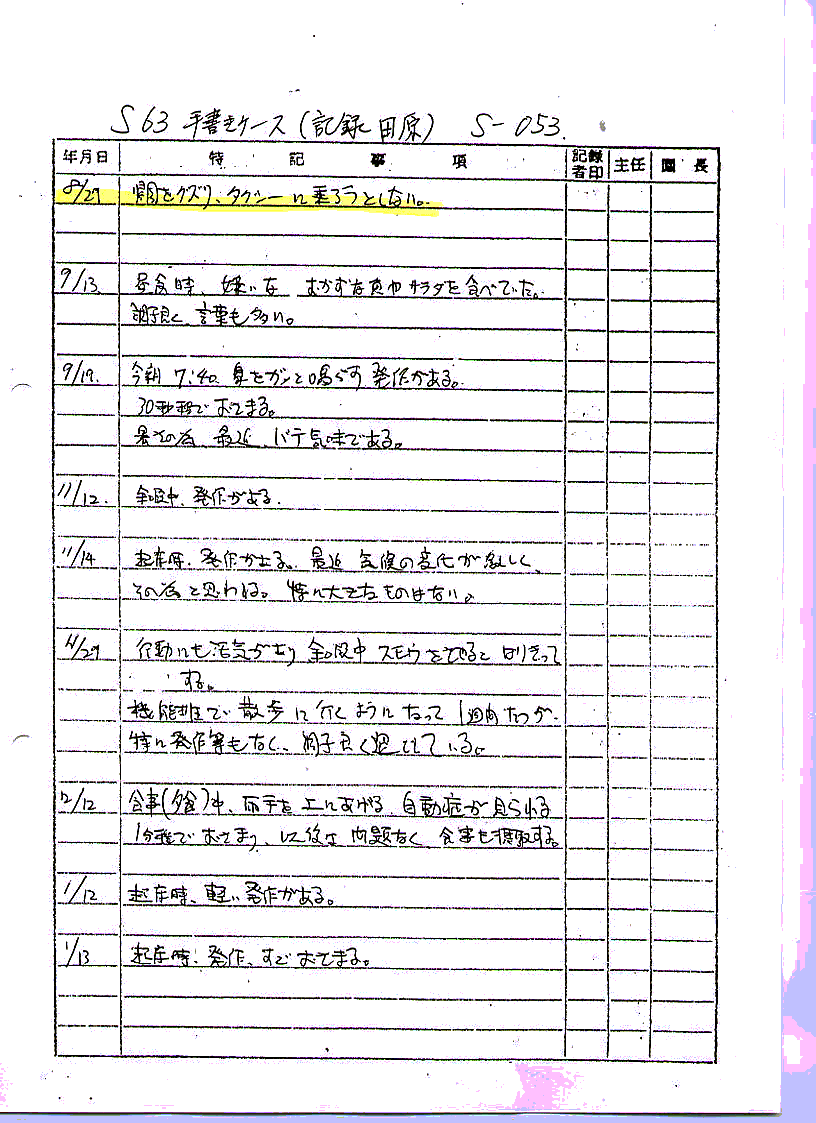 S63 手書きケース(記録 田原) S-053.
年月日 特記事項 記録者印 主任 園長
8/29 クズリ、タクシーに乗ろうとしない。
9/13 昼食時、嫌いな おかずな サラダを食べていた。
調子良く、言葉も多い。
9/19. 今朝 7:40. 鼻をガンと鳴らす 発作がある。
30秒程でおさまる。
暑さの為、最近、バテ気味である。
11/12. 発作がある.
11/14 起床時、発作がある。最近 気候の変化が激しく、
その為と思われる。特に大きなものはない。
11/29 行動にも活気があり スモウをすると はりきって
する。
で散歩に行くようになって 1週間たつが、
特に発作等もなく、調子良く過している。
12/12 食事(夕食)中、両手を上にあげる、自動症が見られる
1分程でおさまり、以後は 問題なく 食事も摂取する。
1/12 起床時、軽い発作がある。
1/13 起床時、発作、すぐおさまる。